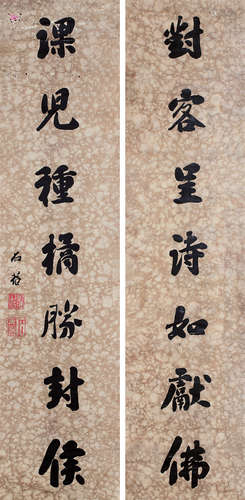 對客呈诗如獻佛
課兒種橘勝封侯